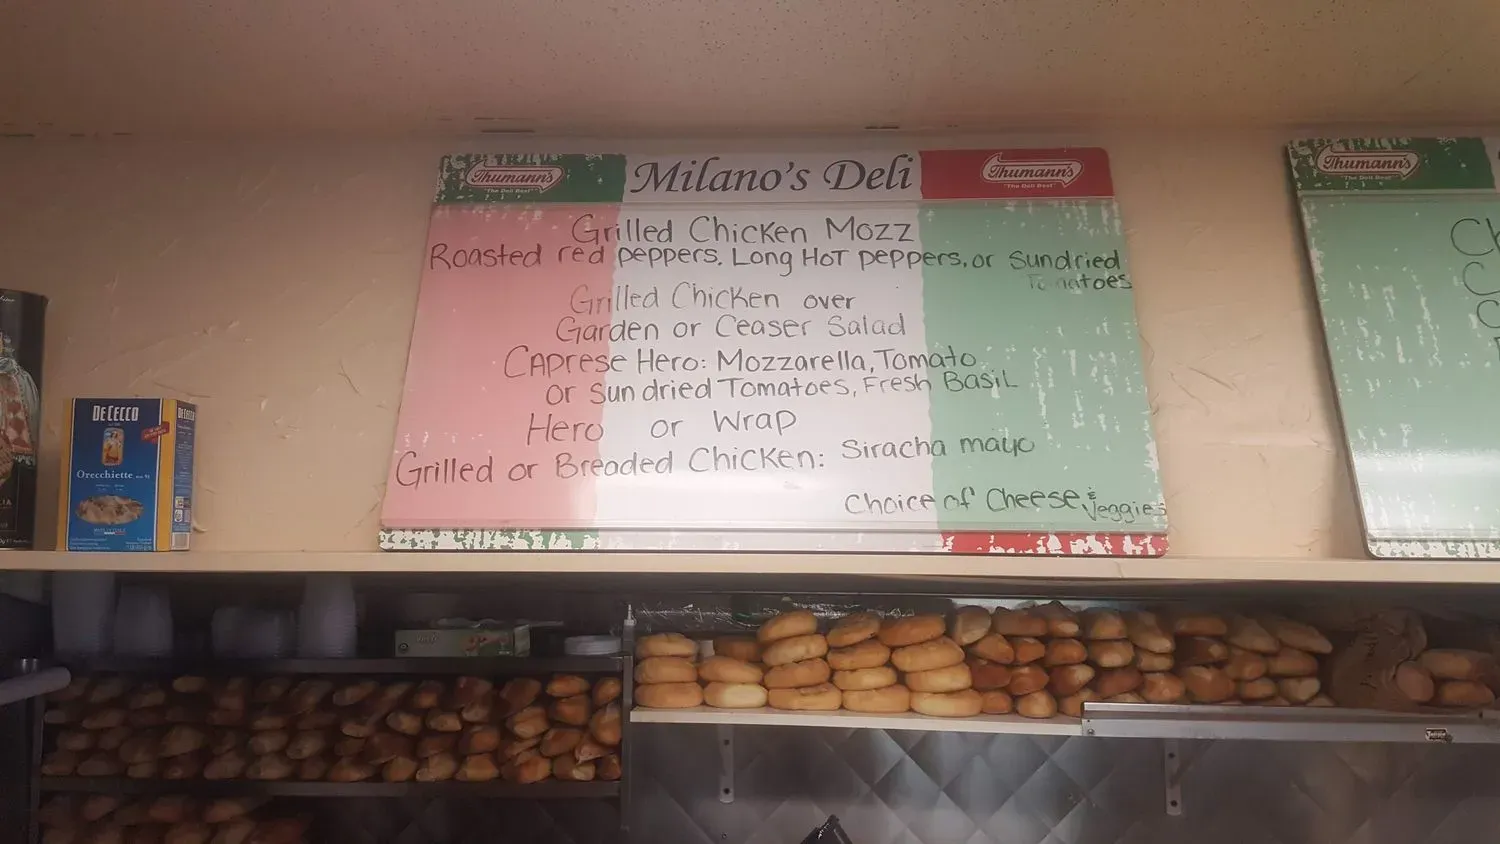 Thumann's
"The Deli Best"
Milano's Deli
Thumann's
"The Deli Best"
Grilled Chicken Mozz
Roasted red peppers, Long Hot peppers, or Sundried
Tomatoes
Grilled Chicken over
Garden or Ceaser Salad
Caprese Hero: Mozzarella, Tomato
or Sundried Tomatoes, Fresh Basil
Hero or Wrap
Grilled or Breaded Chicken: Siracha mayo
Choice of Cheese & Veggies
Thumann's
"The Deli Best"
DE CECCO
DE CECCO
Orecchiette